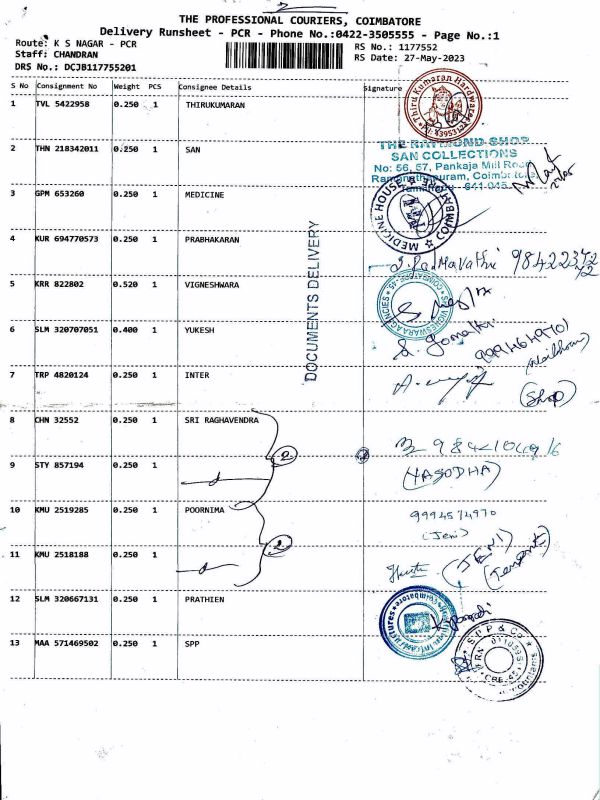 THE PROFESSIONAL COURIERS, COIMBATORE
Delivery Runsheet - PCR - Phone No.:0422-3505555 - Page No.:1
Route: K S NAGAR - PCR
Staff: CHANDRAN
DRS No.: DCJB117755201
RS No.: 1177552
RS Date: 27-May-2023
S No Consignment No Weight PCS Consignee Details Signature
1 TVL 5422958 0.250 1 THIRUKUMARAN
Thiru Kumaran Hardware
2 THN 218342011 0.250 1 SAN
THE RAYMOND SHOP
SAN COLLECTIONS
No: 56, 57, Pankaja Mill Road
Ramanathapuram, Coimbatore,
Tamilnadu - 641 045
3 GPM 653260 0.250 1 MEDICINE
MEDICINE HOUSE
DOCUMENTS DELIVERY
4 KUR 694770573 0.250 1 PRABHAKARAN
5 KRR 822802 0.520 1 VIGNESHWARA
6 SLM 320707051 0.400 1 YUKESH
7 TRP 4820124 0.250 1 INTER
(Shop)
8 CHN 32552 0.250 1 SRI RAGHAVENDRA
2
9 STY 857194 0.250 1
(YASODHA)
10 KMU 2519285 0.250 1 POORNIMA
9994574970
(Jeni)
2
11 KMU 2518188 0.250 1
(JENI)
(Tenant)
12 SLM 320667131 0.250 1 PRATHIEN
13 MAA 571469502 0.250 1 SPP
S P P & Co